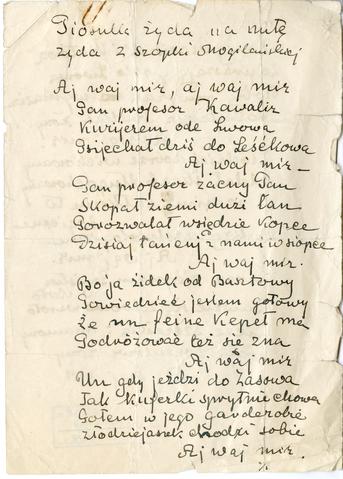 Piosnka żyda na nutę
żyda z szopki Mogilańskiej
Aj waj mir, aj waj mir
Pan profesor Kawalir
Kurijerem ode Lwowa
Psijechał dziś do Leśkowa
Aj waj mir –
Pan profesor zacny Pan
Skopał ziemi duzi łan
Porozwalał wsiędzie Kopce
Dzisiaj tancuj z nami w siopce
Aj waj mir.
Bo ja żidek od Basztowy
Powiedzieć jestem gotowy
Że un feine Kepeł ma
Podróżować też się zna
Aj waj mir
Un gdy jeździ do Zasowa
Jak Kuferki sprytnie chowa
Potem w jego garderobie
złodziejasek chodzi sobie
Aj waj mir.